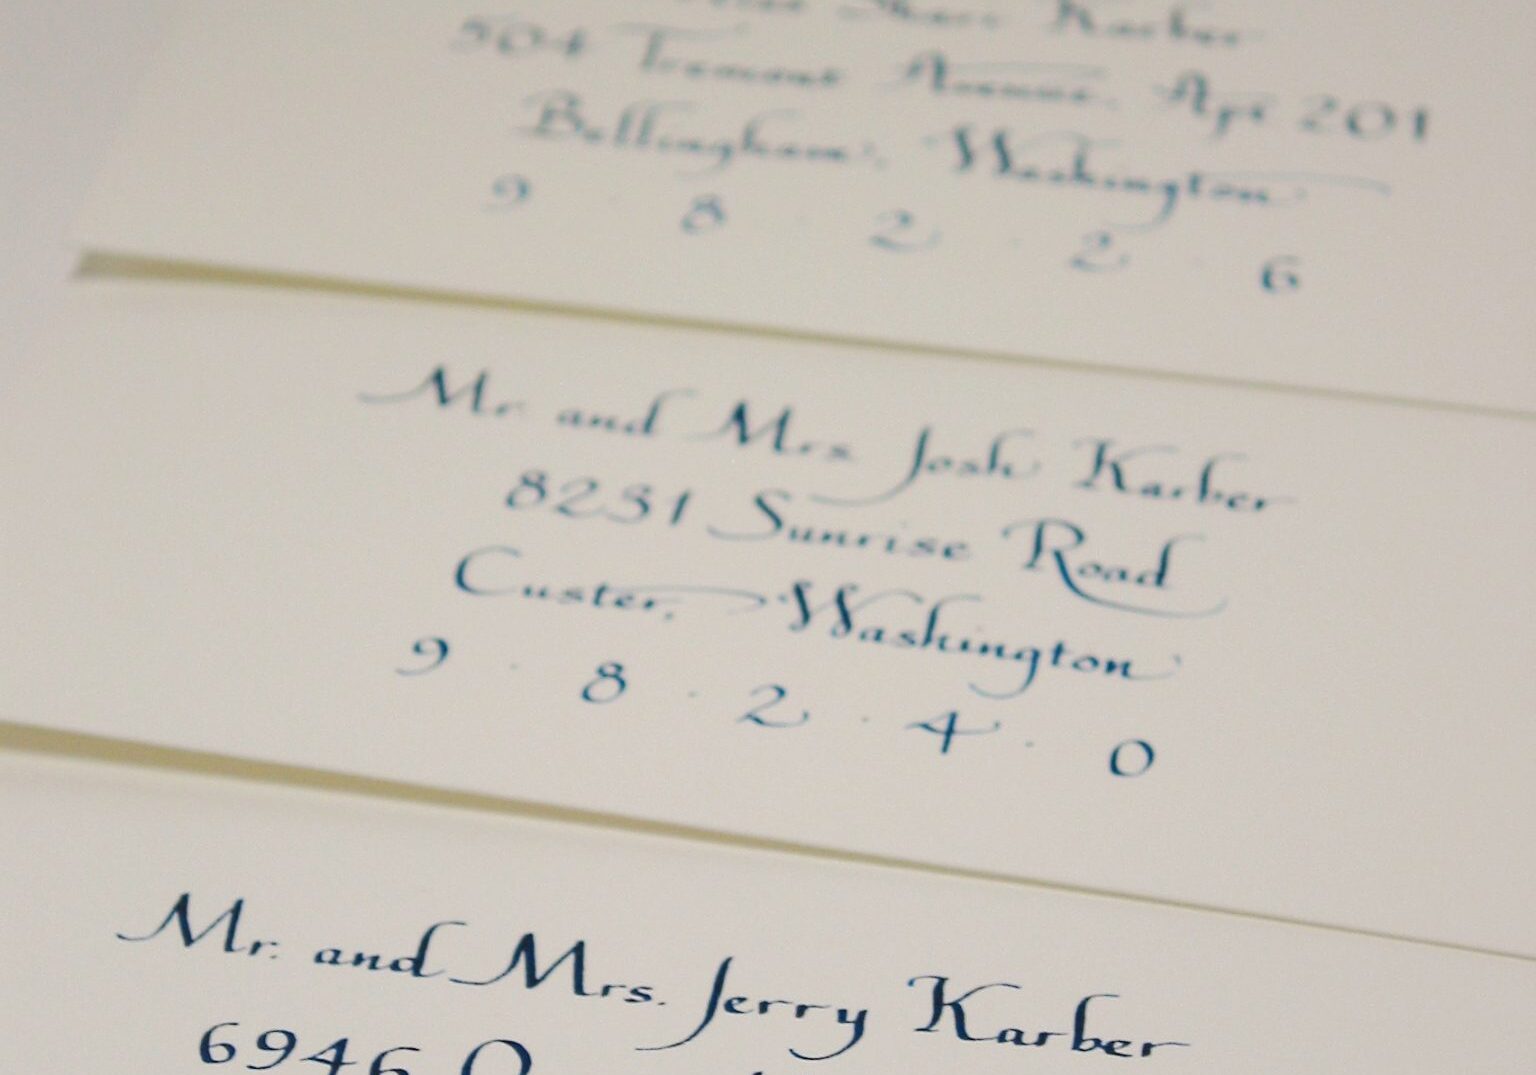 Karber
504 Tremont Avenue, Apt 201
Bellingham, Washington
9 · 8 · 2 · 2 · 6
Mr and Mrs Josh Karber
8231 Sunrise Road
Custer, Washington
9 · 8 · 2 · 4 · 0
Mr. and Mrs. Jerry Karber
6946